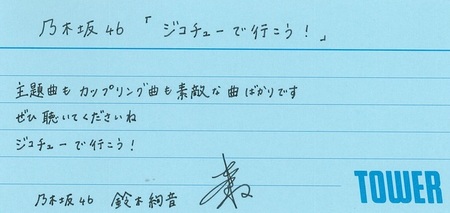 乃木坂46 「ジコチューで行こう!」
主題曲もカップリング曲も素敵な曲ばかりです
ぜひ聴いてくださいね
ジコチューで行こう!
乃木坂46 鈴木絢音
TOWER